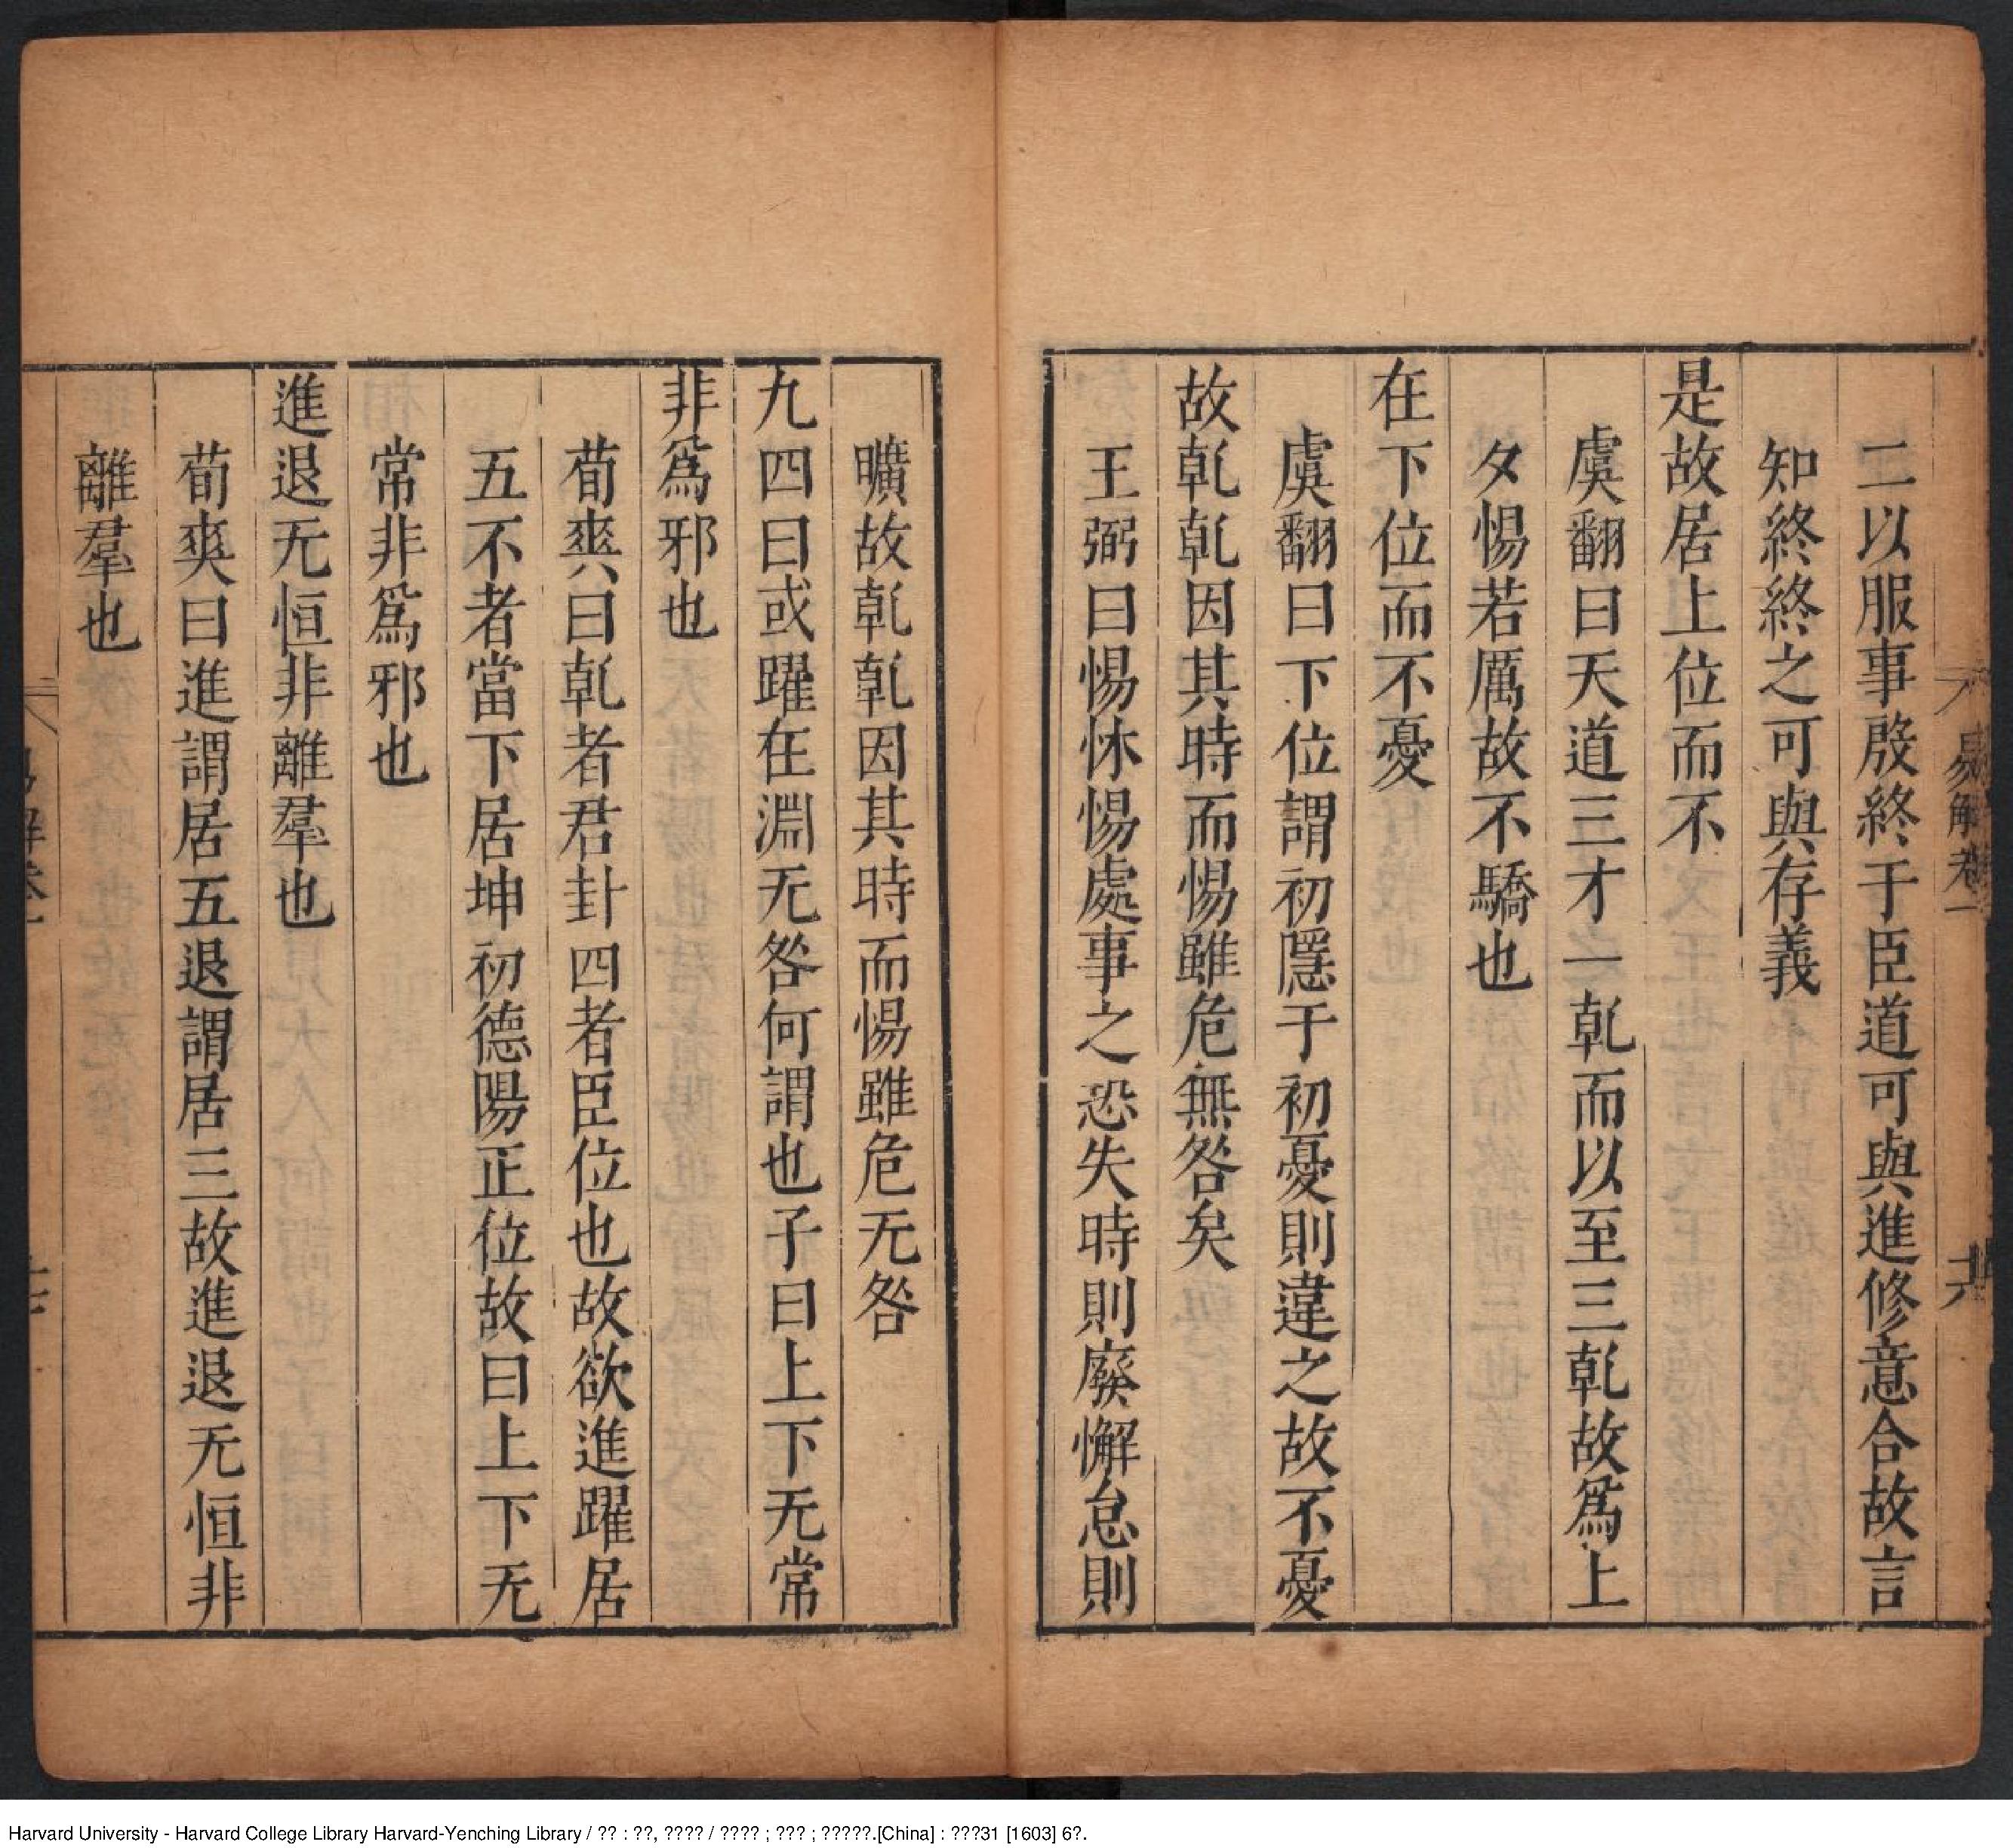 易解卷一
十六
二以服事殷終于臣道可與進修意合故言
知終終之可與存義
是故居上位而不
虞翻曰天道三才一乹而以至三乹故爲上
夕惕若厲故不驕也
在下位而不憂
虞翻曰下位謂初隱于初憂則違之故不憂
故乹乹因其時而惕雖危無咎矣
王弼曰惕怵惕處事之恐失時則廢懈怠則
曠故乹乹因其時而惕雖危无咎
九四曰或躍在淵无咎何謂也子曰上下无常
非爲邪也
荀爽曰乹者君卦四者臣位也故欲進躍居
五不者當下居坤初德陽正位故曰上下无
常非爲邪也
進退无恒非離羣也
荀爽曰進謂居五退謂居三故進退无恒非
離羣也
Harvard University - Harvard College Library Harvard-Yenching Library / ?? : ??, ???? / ???? ; ??? ; ?????.[China] : ???31 [1603] 6?.